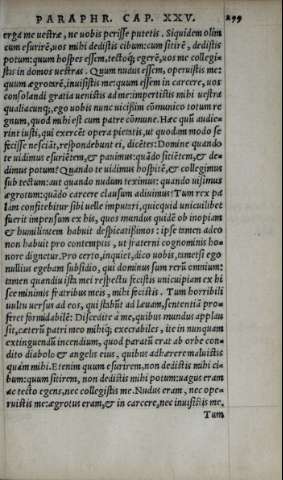 PARAPHR. CAP. XXV. 299
erga me uestræ, ne uobis perijsse putetis. Siquidem olim
cum esurirē, uos mihi dedistis cibum: cum sitirē, dedistis
potum: quum hospes essem, tectoq; egerē, uos me collegi-
stis in domos uestras. Quum nudus essem, operuistis me:
quum ægrotarē, inuisistis me: quum essem in carcere, uos
consolandi gratia uenistis ad me: impertistis mihi uestra
qualiacunq;, ego uobis nunc uicissim cōmunico totum re
gnum, quod mihi est cum patre cōmune. Hæc quū audie-
rint iusti, qui exercēt opera pietatis, ut quodam modo se
fecisse nesciāt, respondebunt ei, dicētes: Domine quando
te uidimus esuriētem, & pauimus: quādo sitiētem, & de-
dimus potum? Quando te uidimus hospitē, & collegimus
sub tectum: aut quando nudum teximus: quando uisimus
ægrotum: quādo carcere clausum adiuimus? Tum rex pa
lam confitebitur sibi uelle imputari, quicquid unicuilibet
fuerit impensum ex his, quos mundus quidē ob inopiam
& humilitatem habuit despicatissimos: ipse tamen adeo
non habuit pro contemptis, ut fraterni cognominis ho-
nore dignetur. Pro certo, inquiet, dico uobis, tametsi ego
nullius egebam subsidio, qui dominus sum rerū omnium:
tamen quandiu ista mei respectu fecistis unicuipiam ex hi
sce minimis fratribus meis, mihi fecistis. Tum horribili
uultu uersus ad eos, qui stabūt ad læuam, sententiā pro-
feret formidabilē: Discedite à me, quibus mundus applau
sit, cæterū patri meo mihiq; execrabiles, ite in nunquam
extinguendū incendium, quod paratū erat ab orbe con-
dito diabolo & angelis eius, quibus adhærere maluistis
quàm mihi. Etenim quum esurirem, non dedistis mihi ci-
bum: quum sitirem, non dedistis mihi potum: uagus eram
ac tecto egens, nec collegistis me. Nudus eram, nec ope-
ruistis me: ægrotus eram, & in carcere, nec inuisistis me.
Tum